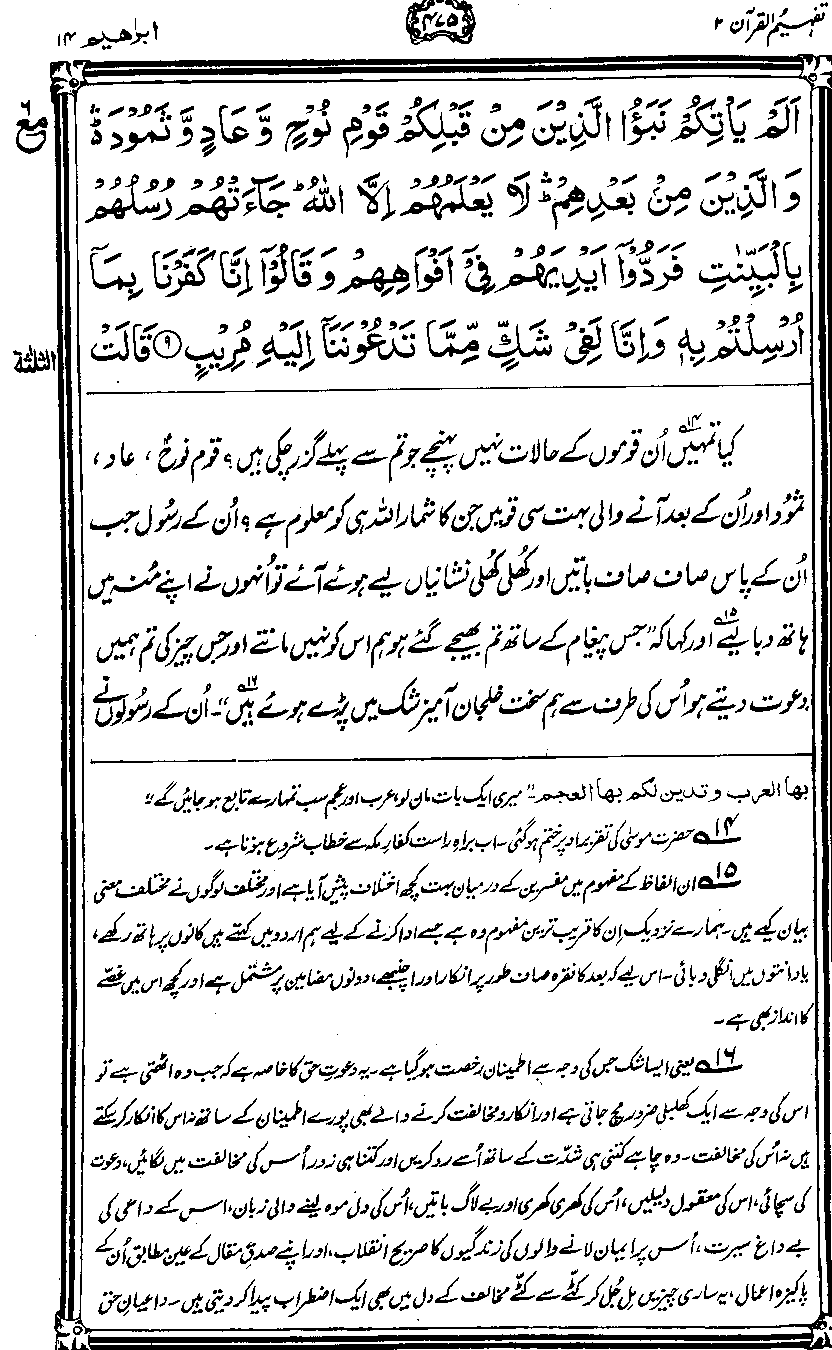 تفہیم القرآن ۲
۴۷۵
ابراھیم ۱۴
اَلَمْ يَاْتِكُمْ نَبَؤُا الَّذِيْنَ مِنْ قَبْلِكُمْ قَوْمِ نُوْحٍ وَّعَادٍ وَّثَمُوْدَ ۛؕ
وَالَّذِيْنَ مِنْ بَعْدِهِمْ ۛؕ لَا يَعْلَمُهُمْ اِلَّا اللّٰهُ ؕ جَآءَتْهُمْ رُسُلُهُمْ
بِالْبَيِّنٰتِ فَرَدُّوْۤا اَيْدِيَهُمْ فِيْۤ اَفْوَاهِهِمْ وَقَالُوْۤا اِنَّا كَفَرْنَا بِمَاۤ
اُرْسِلْتُمْ بِهٖ وَاِنَّا لَفِيْ شَكٍّ مِّمَّا تَدْعُوْنَنَاۤ اِلَيْهِ مُرِيْبٍ ۹ قَالَتْ
مع ۶
الثلثة
کیا تمہیں۱۴ اُن قوموں کے حالات نہیں پہنچے جو تم سے پہلے گزر چکی ہیں؟ قوم نوحؑ، عاد،
ثمود اور اُن کے بعد آنے والی بہت سی قومیں جن کا شمار اللہ ہی کو معلوم ہے؟ اُن کے رسُول جب
اُن کے پاس صاف صاف باتیں اور کھُلی کھُلی نشانیاں لیے ہوئے آئے تو اُنہوں نے اپنے مُنہ میں
ہاتھ دبا لیے۱۵ اور کہا کہ "جس پیغام کے ساتھ تم بھیجے گئے ہو ہم اس کو نہیں مانتے اور جس چیز کی تم ہمیں
دعوت دیتے ہو اُس کی طرف سے ہم سخت خلجان آمیز شک میں پڑے ہوئے ہیں۱۶"۔ اُن کے رسُولوں نے
بھا العرب و تدین لکم بھا العجم۔" میری ایک بات مان لو، عرب اور عجم سب تمہارے تابع ہو جائیں گے"
۱۴ حضرت موسیٰ کی تقریر اوپر ختم ہو گئی۔ اب براہِ راست کفارِ مکہ سے خطاب شروع ہوتا ہے۔
۱۵ ان الفاظ کے مفہوم میں مفسرین کے درمیان بہت کچھ اختلاف پیش آیا ہے اور مختلف لوگوں نے مختلف معنی
بیان کیے ہیں۔ ہمارے نزدیک اِن کا قریب ترین مفہوم وہ ہے جسے ادا کرنے کے لیے ہم اردو میں کہتے ہیں کانوں پر ہاتھ رکھے،
یا دانتوں میں انگلی دبائی۔ اس لیے کہ بعد کا فقرہ صاف طور پر انکار اور اچنبھے، دونوں مضامین پر مشتمل ہے اور کچھ اس میں غصّے
کا انداز بھی ہے۔
۱۶ یعنی ایسا شک جس کی وجہ سے اطمینان رخصت ہو گیا ہے۔ یہ دعوتِ حق کا خاصہ ہے کہ جب وہ اٹھتی ہے تو
اس کی وجہ سے ایک کھلبلی ضرور مچ جاتی ہے اور انکار و مخالفت کرنے والے بھی پورے اطمینان کے ساتھ نہ اس کا انکار کر سکتے
ہیں نہ اُس کی مخالفت۔ وہ چاہے کتنی ہی شدّت کے ساتھ اُسے رد کریں اور کتنا ہی زور اُس کی مخالفت میں لگائیں، دعوت
کی سچائی، اس کی معقول دلیلیں، اُس کی کھری کھری اور بے لاگ باتیں، اُس کی دل موہ لینے والی زبان، اس کے داعی کی
بے داغ سیرت، اُس پر ایمان لانے والوں کی زندگیوں کا صریح انقلاب، اور اپنے صدقِ مقال کے عین مطابق اُن کے
پاکیزہ اعمال، یہ ساری چیزیں مِل جُل کر کٹّے سے کٹّے مخالف کے دل میں بھی ایک اضطراب پیدا کر دیتی ہیں۔ داعیانِ حق